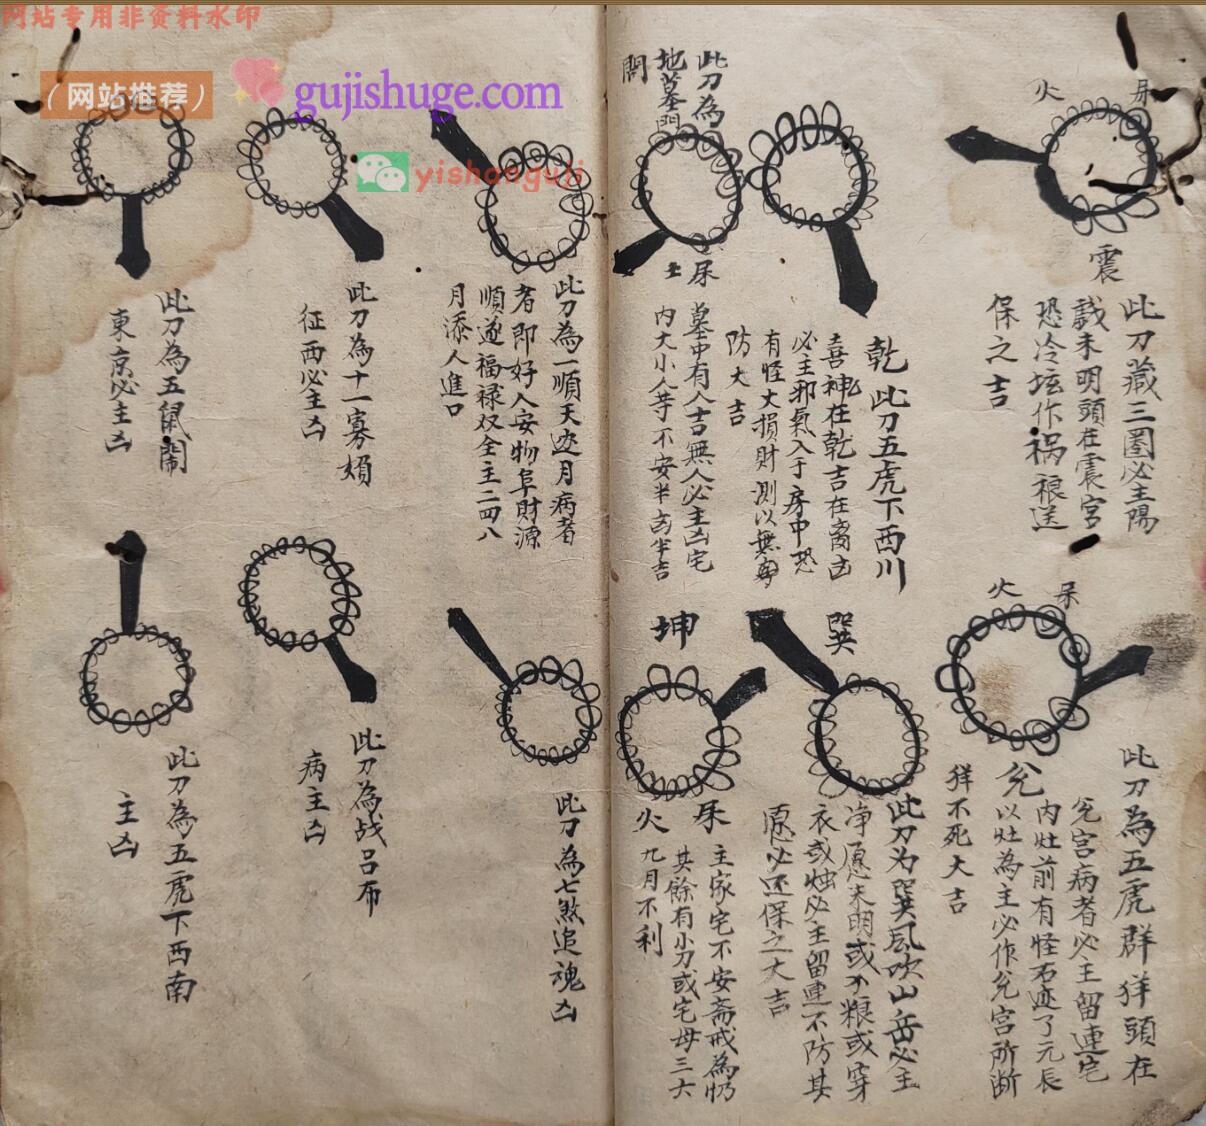 网站专用非资料水印
（网站推荐）
gujishuge.com
yishanguji
火
杘
震
此刀藏三圈必主陽
戩未明頭在震宮
恐冷坛作祸
保之吉
乾
此刀五虎下西川
喜神在乾吉在离凶
必主邪氣入于房中恐
有怪大損財測以無
防大吉
此刀為
地墓門
開
土
杘
墓中有人吉無人必主凶宅
内大小人等不安半凶半吉
火
杘
此刀為五虎群牂頭在
兌宮病者必主留連宅
内灶前有怪石迹了元辰
兌
以灶為主必作兌宮所断
牂不死大吉
巽
此刀为巽風吹山岳必主
净愿未明或少粮或穿
衣或烛必主留連不防其
愿必还保之大吉
坤
火
杘
主家宅不安斋戒為
其餘有小刀或宅母三六
九月不利
此刀為一順天迯月病者
者即好人安物阜財源
順遂福禄双全主二四八
月添人進口
此刀為十一寡婦
征西必主凶
此刀為五鼠鬧
東京必主凶
此刀為七煞追魂凶
此刀為战吕布
病主凶
此刀為五虎下西南
主凶